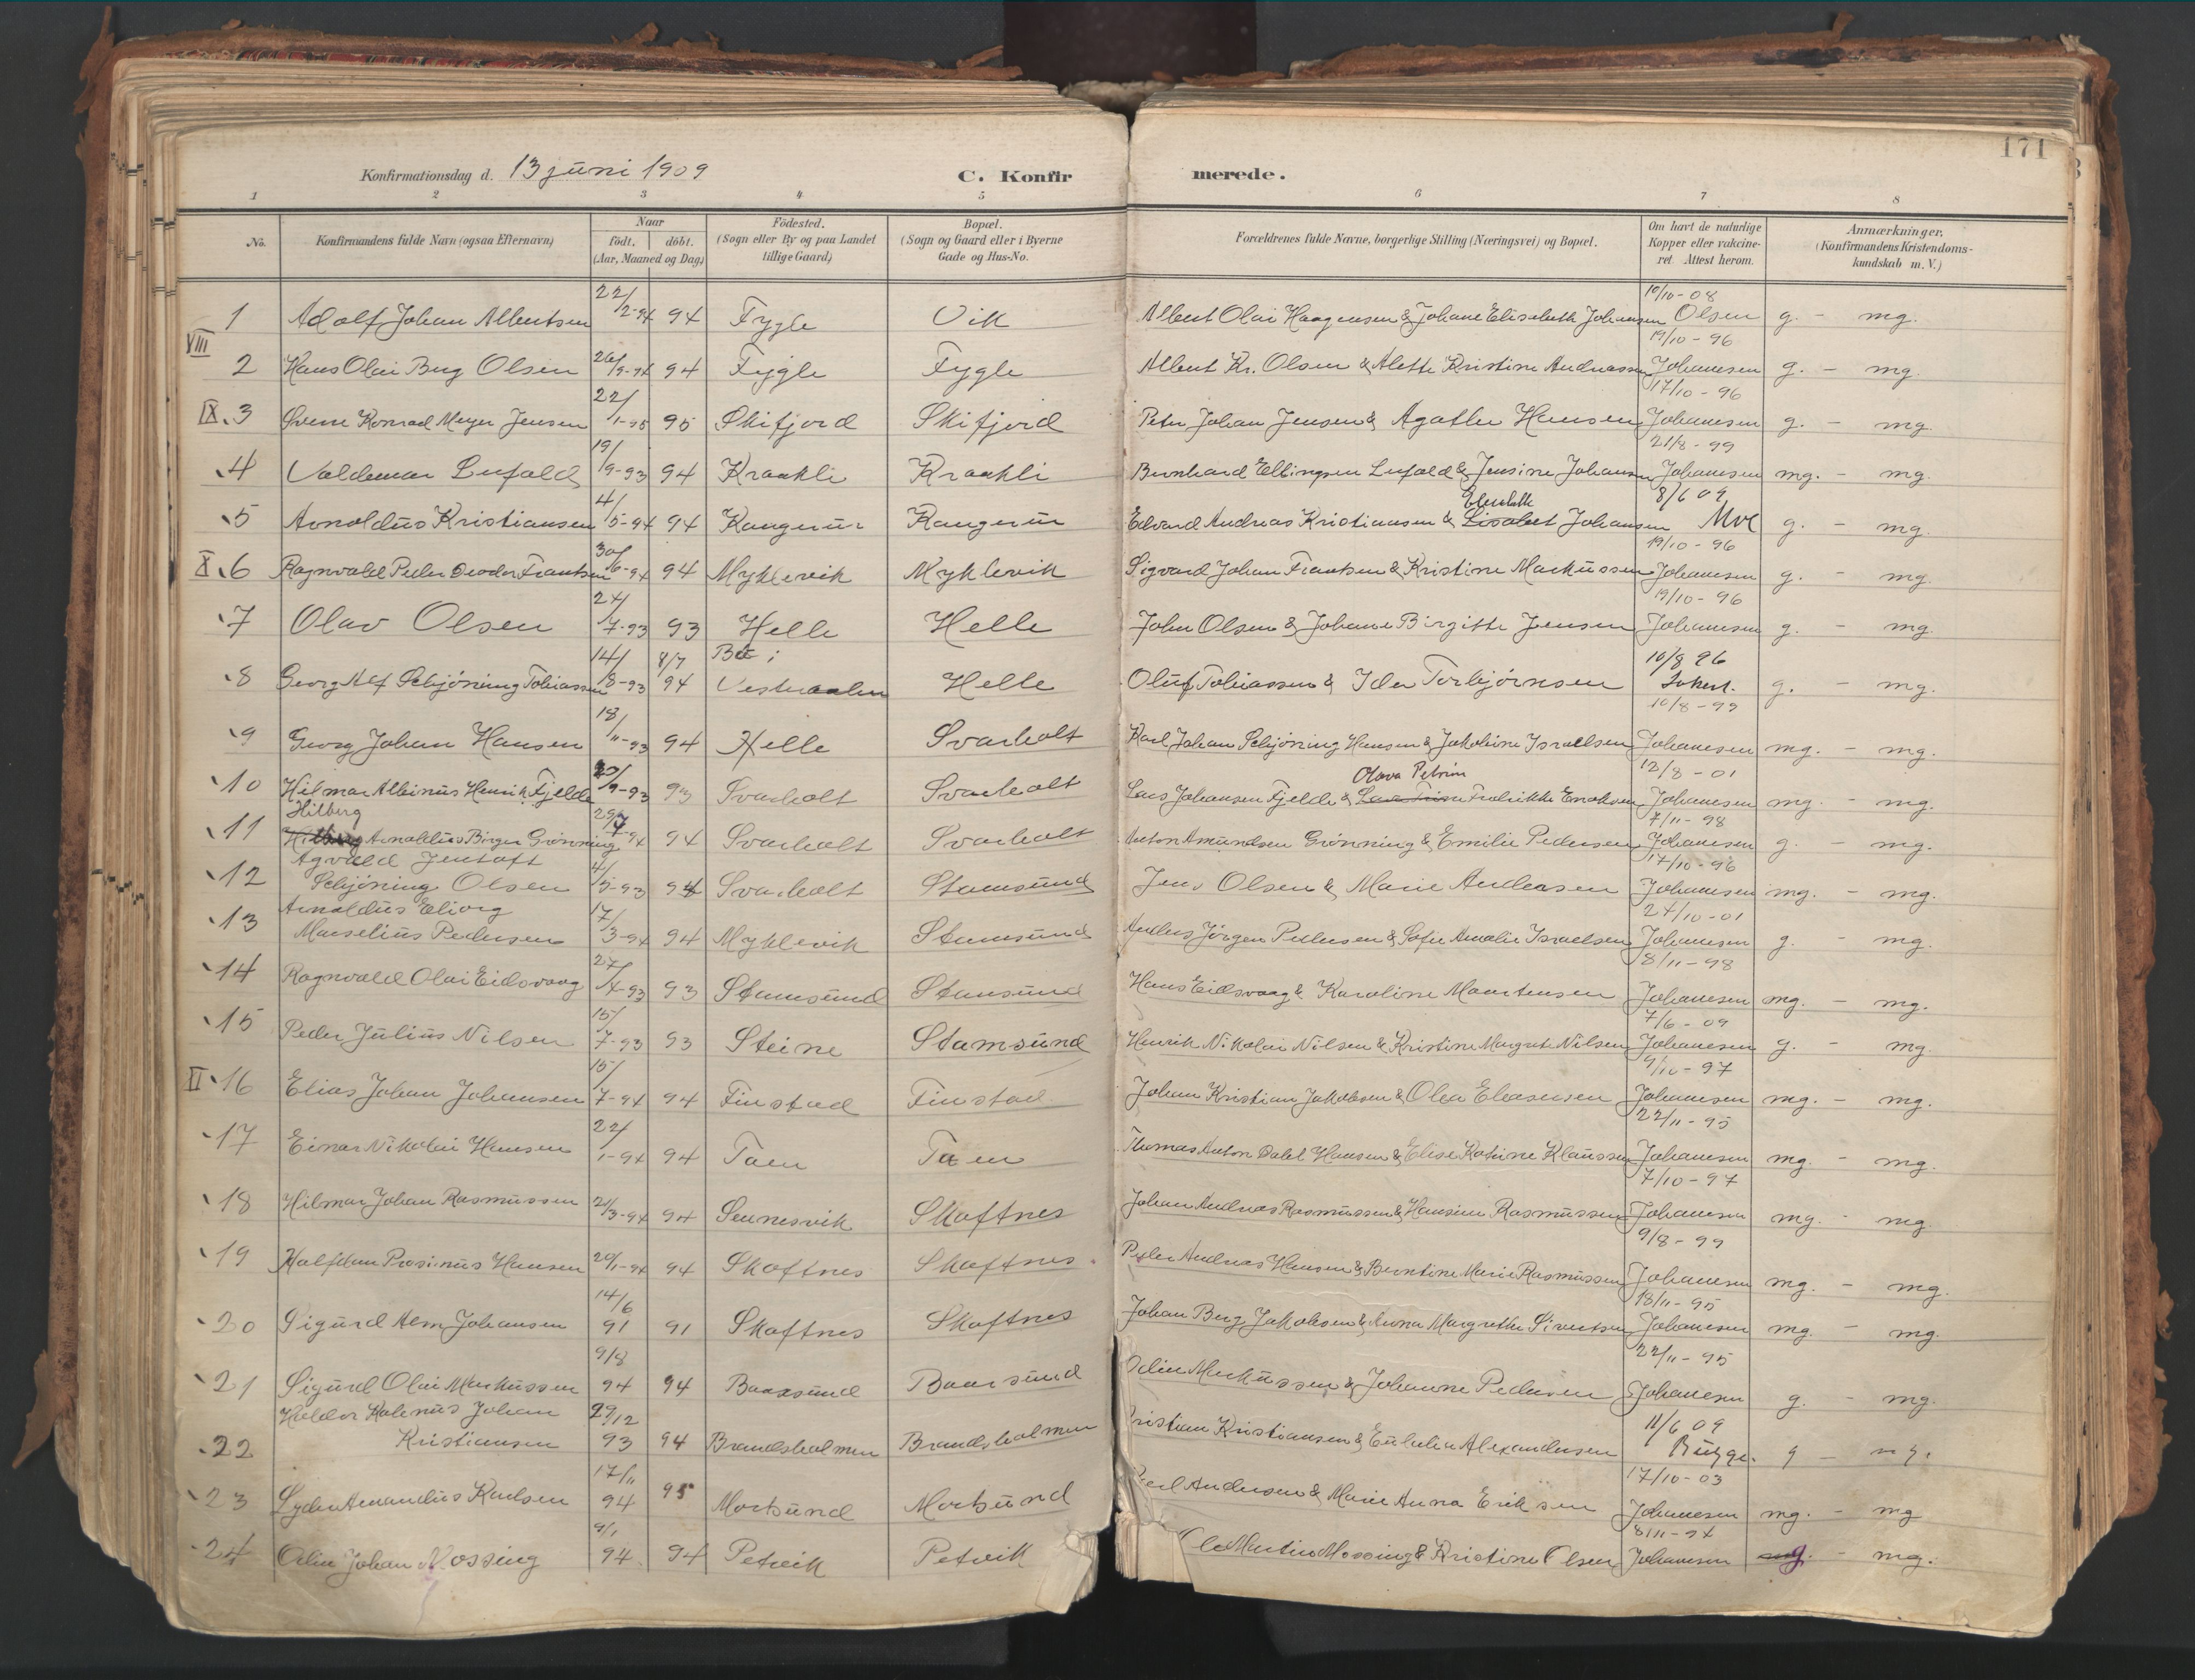 171
Konfirmationsdag d. 13 juni 1909 C. Konfirmerede.
1 2 3 4 5 6 7 8
No. Konfirmandens fulde Navn (ogsaa Efternavn) Naar födt. döbt. (Aar, Maaned og Dag) Födested. (Sogn eller By og paa Landet tillige Gaard) Bopæl. (Sogn og Gaard eller i Byerne Gade og Hus-No. Forældrenes fulde Navne, borgerlige Stilling (Næringsvei) og Bopæl. Om havt de naturlige Kopper eller vakcineret. Attest herom. Anmærkninger. (Konfirmandens Kristendomskundskab m. V.)
1 Adolf Johan Albertsen 22/2-94 94 Fygle Vik Albert Olai Haagensen & Johane Elisabeth Johansen 10/10-08 Olsen g. - mg.
VIII
2 Hans Olai Berg Olsen 26/9-94 94 Fygle Fygle Albert Kr. Olsen & Alette Kristine Andreassen 19/10-96 Johanesen g. - mg.
IX 3 Sverre Konrad Meyer Jensen 22/1-95 95 Skifjord Skifjord Peter Johan Jensen & Agathe Hansen 17/10-96 Johanesen g. - mg.
4 Valdemar Lufald 19/9-93 94 Kraakli Kraakli Bernhard Ellingsen Lufald & Jensine Johansen 21/8-99 Johanesen mg. - mg.
5 Arnoldus Kristiansen 4/5-94 94 Kangerur Kangerur Edvard Andreas Kristiansen & Elisabeth Johansen 8/6 09 Moe g. - mg.
X 6 Ragnvald Peder Deoder Frantsen 30/6-94 94 Myklevik Myklevik Sigvard Johan Frantsen & Kristine Markussen 19/10-96 Johanesen g. - mg.
7 Olav Olsen 24/7-93 93 Helle Helle John Olsen & Johane Birgitte Jensen 19/10-96 Johanesen g. - mg.
8 Georg Alf Schjöning Tobiassen 14/8-93 8/7 94 Bö i Vesteraalen Helle Oluf Tobiassen & Ida Torbjörnsen 10/8 96 g. - mg.
9 Georg Johan Hansen 18/11-93 94 Helle Svarholt Karl Johan Schjöning Hansen & Jakobine Israelsen 10/8-99 Johanesen mg. - mg.
10 Hilmar Albinus Henrik Fjelde 20/9-93 93 Svarholt Svarholt Lars Johansen Fjelde & Olava Petrine Fredrikke Enoksen 13/8-01 Johanesen mg. - mg.
11 Hilberg Arnoldus Birger Grönning 29/7-94 94 Svarholt Svarholt Anton Amundsen Grönning & Emilie Pedersen 7/11-98 Johanesen g. - mg.
12 Agvald Jentoft Schjöning Olsen 4/5-93 94 Svarholt Stamsund Jens Olsen & Marie Andersen 17/10-96 Johanesen mg. - mg.
13 Arnoldus Eliorg Marselius Pedersen 17/3-94 94 Myklevik Stamsund Anders Jörgen Pedersen & Sofie Amalie Israelsen 24/10-01 Johanesen g. - mg.
14 Ragnvald Olai Eidsvaag 27/4-93 93 Stamsund Stamsund Hans Eidsvaag & Karoline Maartensen 8/11-98 Johanesen mg. - mg.
15 Peder Julius Nilsen 15/7-93 93 Steine Stamsund Henrik Nikolai Nilsen & Kristine Margret Nilsen 7/6-09 Johanesen g. - mg.
XI 16 Elias Johan Johansen 15/7-94 94 Finstad Finstad Johan Kristian Jakobsen & Olea Eleasensen 9/10-97 Johanesen mg. - mg.
17 Einar Nikolai Hansen 22/1-94 94 Taen Taen Thomas Anton Dahl Hansen & Elise Katrine Klaussen 22/11-95 Johanesen mg. - mg.
18 Hilmar Johan Rasmussen 21/3-94 94 Sennesvik Skaftnes Johan Andreas Rasmussen & Hansine Rasmussen 7/10-97 Johanesen mg. - mg.
19 Halfdan Prosinus Hansen 20/1-94 94 Skaftnes Skaftnes. Peder Andreas Hansen & Berntine Marie Rasmussen 9/8-99 Johanesen mg. - mg.
20 Sigurd Alm Johansen 14/6 91 91 Skaftnes Skaftnes Johan Berg Jakobsen & Anna Margrethe Sivertsen 18/11-95 Johanesen mg. - mg.
21 Sigurd Olai Markussen 9/8 94 94 Baarsund Baarsund Odin Markussen & Johanne Pedersen 22/11-95 Johanesen g. - mg.
22 Haldor Kolenus Johan Kristiansen 29/12 93 94 Brandsholmen Brandsholmen ristian Kristiansen & Eulalia Alexandersen 11/6 09 Bugge. g - mg.
23 Lyder Amandus Karlsen 17/11 94 95 Mortsund Mortsund Andersen & Marie Anna Eriksen 17/10-03 Johanesen mg. - mg
24 Odin Johan Mossing 9/1 94. 94 Petvik Petvik Ole Martin Mossing & Kristine Olsen 8/11-94 Johanesen g. - mg.